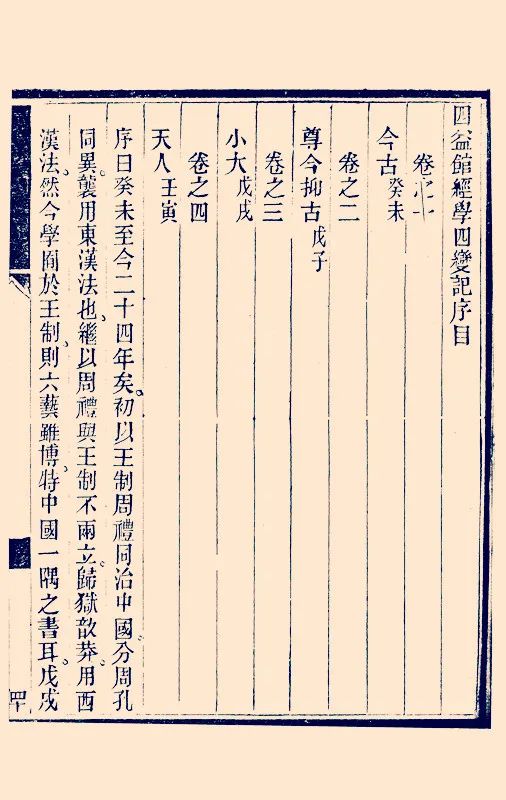 四益館經學四變記序目
卷之一
今古癸未
卷之二
尊今抑古戊子
卷之三
小大戊戌
卷之四
天人壬寅
序曰癸未至今二十四年矣初以王制周禮同治中國分周孔
同異襲用東漢法也繼以周禮與王制不兩立歸獄歆莽用西
漢法然今學囿於王制則六藝雖博特中國一隅之書耳戊戌